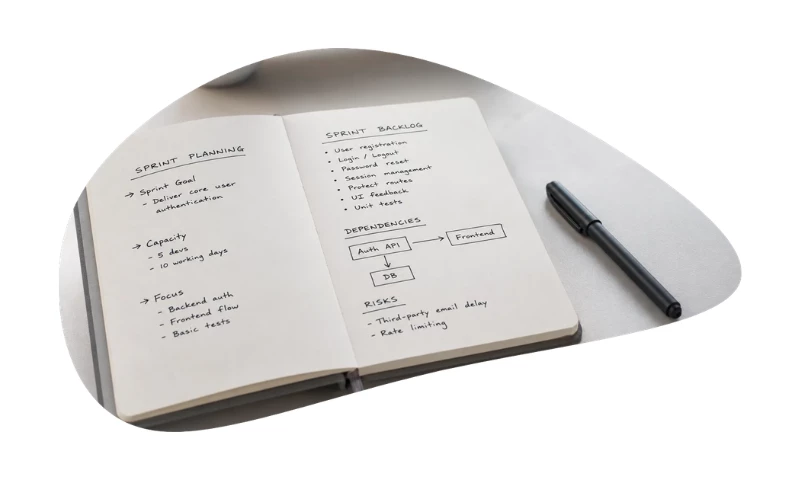 SPRINT PLANNING
→ Sprint Goal
- Deliver core user
authentication
→ Capacity
- 5 devs
- 10 working days
→ Focus
- Backend auth
- Frontend flow
- Basic tests
SPRINT BACKLOG
• User registration
• Login / Logout
• Password reset
• Session management
• Protect routes
• UI feedback
• Unit tests
DEPENDENCIES
Auth API → Frontend
↓
DB
RISKS
- Third-party email delay
- Rate limiting